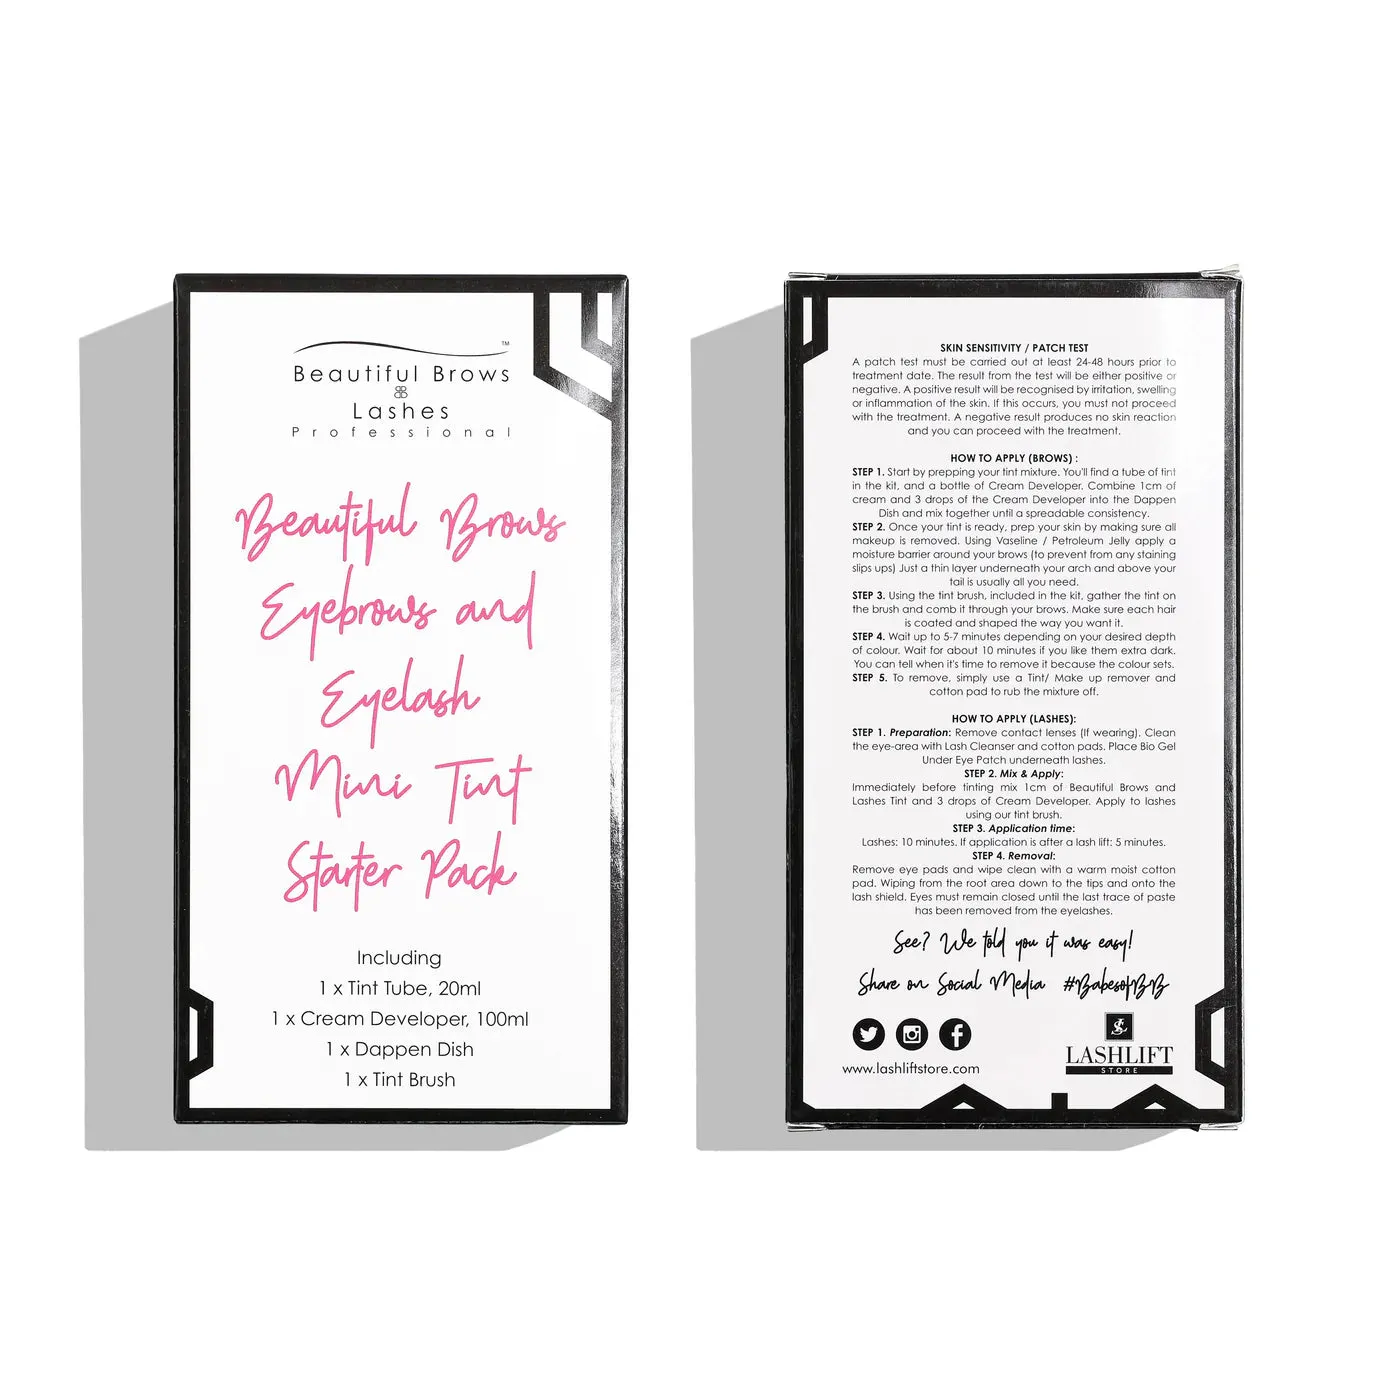 ™
Beautiful Brows
Lashes
Professional
Beautiful Brows
Eyebrows and
Eyelash
Mini Tint
Starter Pack
Including
1 x Tint Tube, 20ml
1 x Cream Developer, 100ml
1 x Dappen Dish
1 x Tint Brush
SKIN SENSITIVITY / PATCH TEST
A patch test must be carried out at least 24-48 hours prior to
treatment date. The result from the test will be either positive or
negative. A positive result will be recognised by irritation, swelling
or inflammation of the skin. If this occurs, you must not proceed
with the treatment. A negative result produces no skin reaction
and you can proceed with the treatment.
HOW TO APPLY (BROWS) :
STEP 1. Start by prepping your tint mixture. You'll find a tube of tint
in the kit, and a bottle of Cream Developer. Combine 1cm of
cream and 3 drops of the Cream Developer into the Dappen
Dish and mix together until a spreadable consistency.
STEP 2. Once your tint is ready, prep your skin by making sure all
makeup is removed. Using Vaseline / Petroleum Jelly apply a
moisture barrier around your brows (to prevent from any staining
slips ups) Just a thin layer underneath your arch and above your
tail is usually all you need.
STEP 3. Using the tint brush, included in the kit, gather the tint on
the brush and comb it through your brows. Make sure each hair
is coated and shaped the way you want it.
STEP 4. Wait up to 5-7 minutes depending on your desired depth
of colour. Wait for about 10 minutes if you like them extra dark.
You can tell when it's time to remove it because the colour sets.
STEP 5. To remove, simply use a Tint/ Make up remover and
cotton pad to rub the mixture off.
HOW TO APPLY (LASHES):
STEP 1. Preparation: Remove contact lenses (If wearing). Clean
the eye-area with Lash Cleanser and cotton pads. Place Bio Gel
Under Eye Patch underneath lashes.
STEP 2. Mix & Apply:
Immediately before tinting mix 1cm of Beautiful Brows and
Lashes Tint and 3 drops of Cream Developer. Apply to lashes
using our tint brush.
STEP 3. Application time:
Lashes: 10 minutes. If application is after a lash lift: 5 minutes.
STEP 4. Removal:
Remove eye pads and wipe clean with a warm moist cotton
pad. Wiping from the root area down to the tips and onto the
lash shield. Eyes must remain closed until the last trace of paste
has been removed from the eyelashes.
See? We told you it was easy!
Share on Social Media #BabesofBB
www.lashliftstore.com
LASHLIFT
STORE